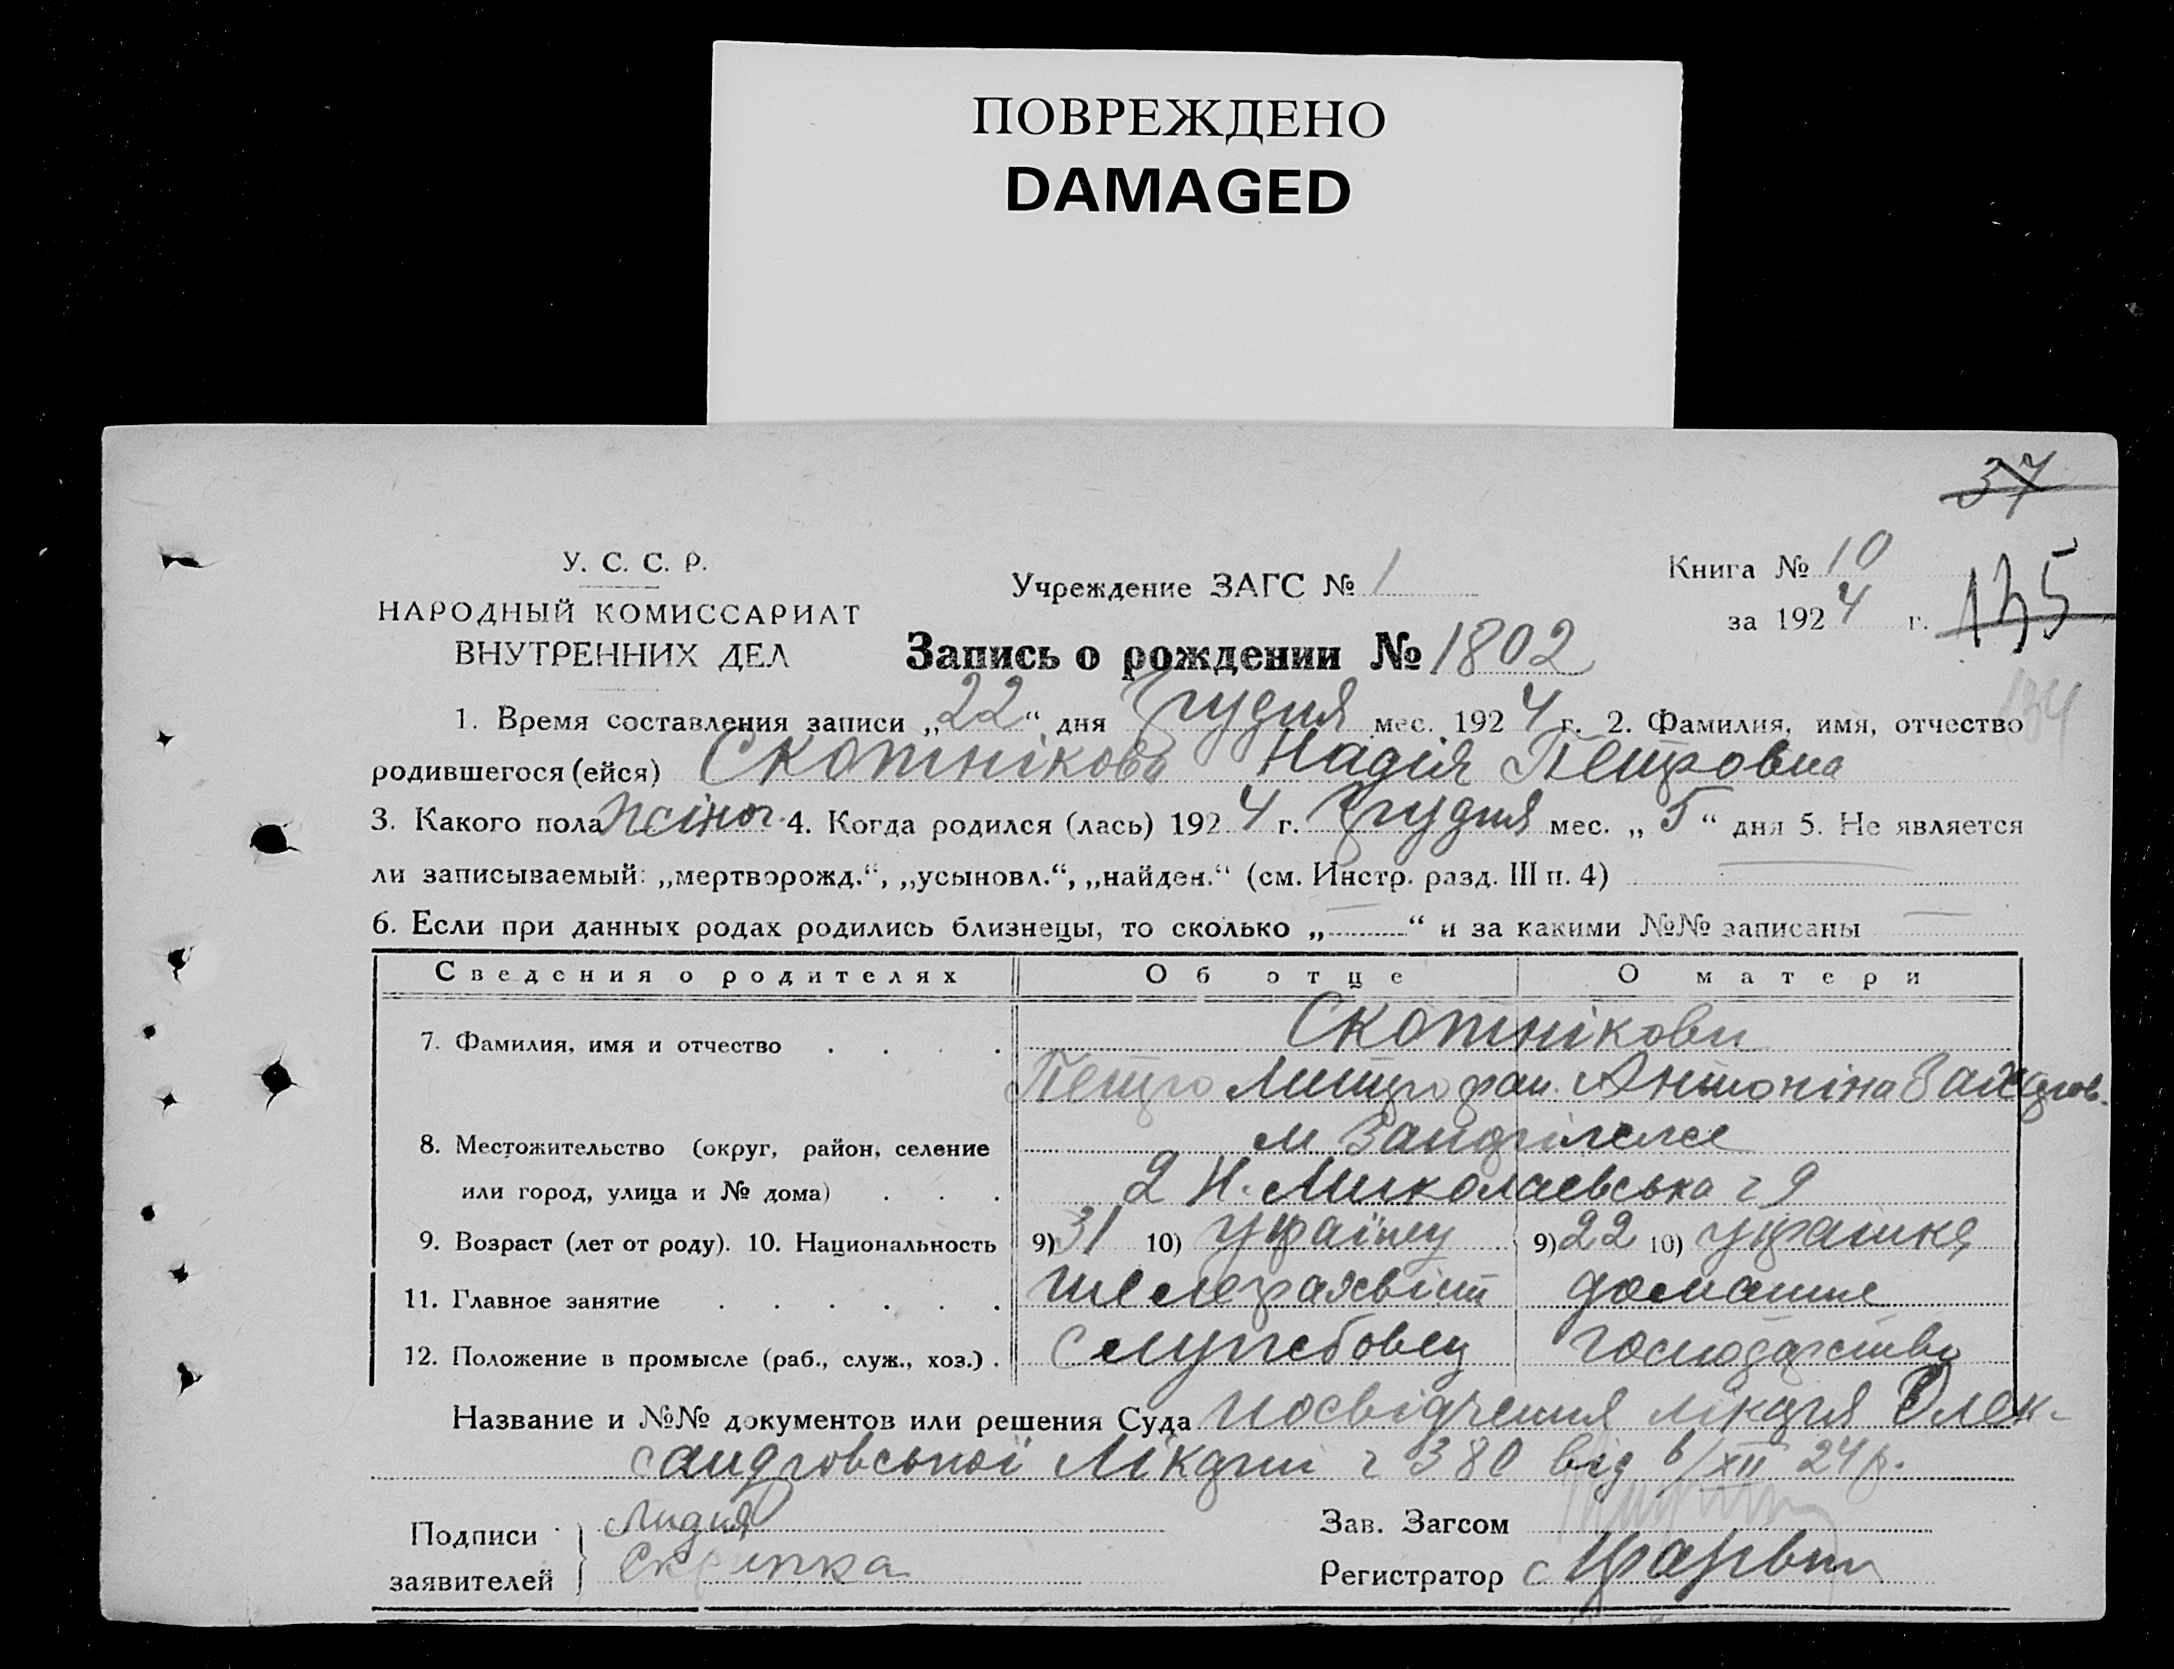 ПОВРЕЖДЕНО
DAMAGED
37
У. С. С. Р.
НАРОДНЫЙ КОМИССАРИАТ
ВНУТРЕННИХ ДЕЛ
Учреждение ЗАГС № 1
Книга № 10
за 1924 г.
135
134
Запись о рождении № 1802
1. Время составления записи „22“ дня Грудня мес. 1924 г. 2. Фамилия, имя, отчество
родившегося (ейся) Скотнікова Надія Петровна
3. Какого пола жіноч. 4. Когда родился (лась) 1924 г. Грудня мес. „5“ дня 5. Не является
ли записываемый: „мертворожд.“, „усыновл.“, „найден.“ (см. Инстр. разд. III п. 4) —
6. Если при данных родах родились близнецы, то сколько „—“ и за какими №№ записаны —
Сведения о родителях Об отце О матери
7. Фамилия, имя и отчество . . . . Скотнікови
Петро Митрофан. Антоніна Захаров.
8. Местожительство (округ, район, селение м Запоріжже
или город, улица и № дома) . . . 2 Н. Миколаевська ч 9
9. Возраст (лет от роду). 10. Национальность 9) 31 10) Украінец 9) 22 10) Украінка
11. Главное занятие . . . . . . телеграхвіст домашне
12. Положение в промысле (раб., служ., хоз.) . Службовец господарство
Название и №№ документов или решения Суда посвідчення лікаря Олек-
сандровської Лікарні ч 380 від 6/XII 24 р.
Подписи заявителей } Лидия
Скрипка
Зав. Загсом
Регистратор